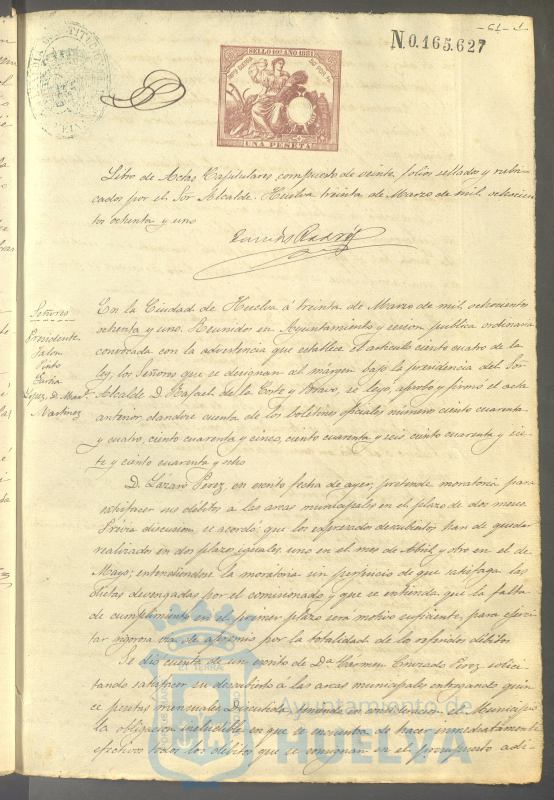 -61- 1
N.0.165.627
SELLO 10º AÑO 1881
UNA PESETA
Libro de Actas Capitulares compuesto de veinte folios sellados y rubri-
cados por el Sor Alcalde. Huelva treinta de Marzo de mil ochocien-
tos ochenta y uno
Señores
Presidente
Jalon
Pinto
Garcia
Lopez, D. Mart.
Martinez
En la Ciudad de Huelva á treinta de Marzo de mil ochocientos
ochenta y uno. Reunidos en Ayuntamiento y sesion publica ordinaria
convocada con la advertencia que establece el articulo ciento cuatro de la
ley, los Señores que se designan al margen bajo la presidencia del Sor
Alcalde D. Rafael de la Corte y Bravo, se leyó, aprobó y firmó el acta
anterior, dandose cuenta de los boletines oficiales numero ciento cuaren-
ta y cuatro, ciento cuarenta y cinco, ciento cuarenta y seis ciento cuarenta y sie-
te y ciento cuarenta y ocho
D. Lázaro Perez, en escrito fecha de ayer, pretende moratoria para
satisfacer sus débitos a las arcas municipales en el plazo de dos meses
Prévia discusion, se acordó que los expresados descubiertos han de quedar
realizados en dos plazos iguales, uno en el mes de Abril y otro en el de
Mayo; entendiendose la moratoria sin perjuicio de que satisfaga las
dietas devengadas por el comisionado y que se entienda que la falta
de cumplimiento en el primer plazo será motivo suficiente, para ejerci-
tar rigorosa via de apremio por la totalidad de los referidos débitos
Se dió cuenta de un escrito de Dª Cármen Cruzado Perez solici-
tando satisfacer su descubierto á las arcas municipales entregando quin-
ce pesetas mensuales. Discutida, teniendo en consideracion el Municipio
la obligacion ineludible en que se encuentra de hacer inmediatamente
efectivos todos los débitos que se consignan en el presupuesto adi-
Ayuntamiento de
HUELVA